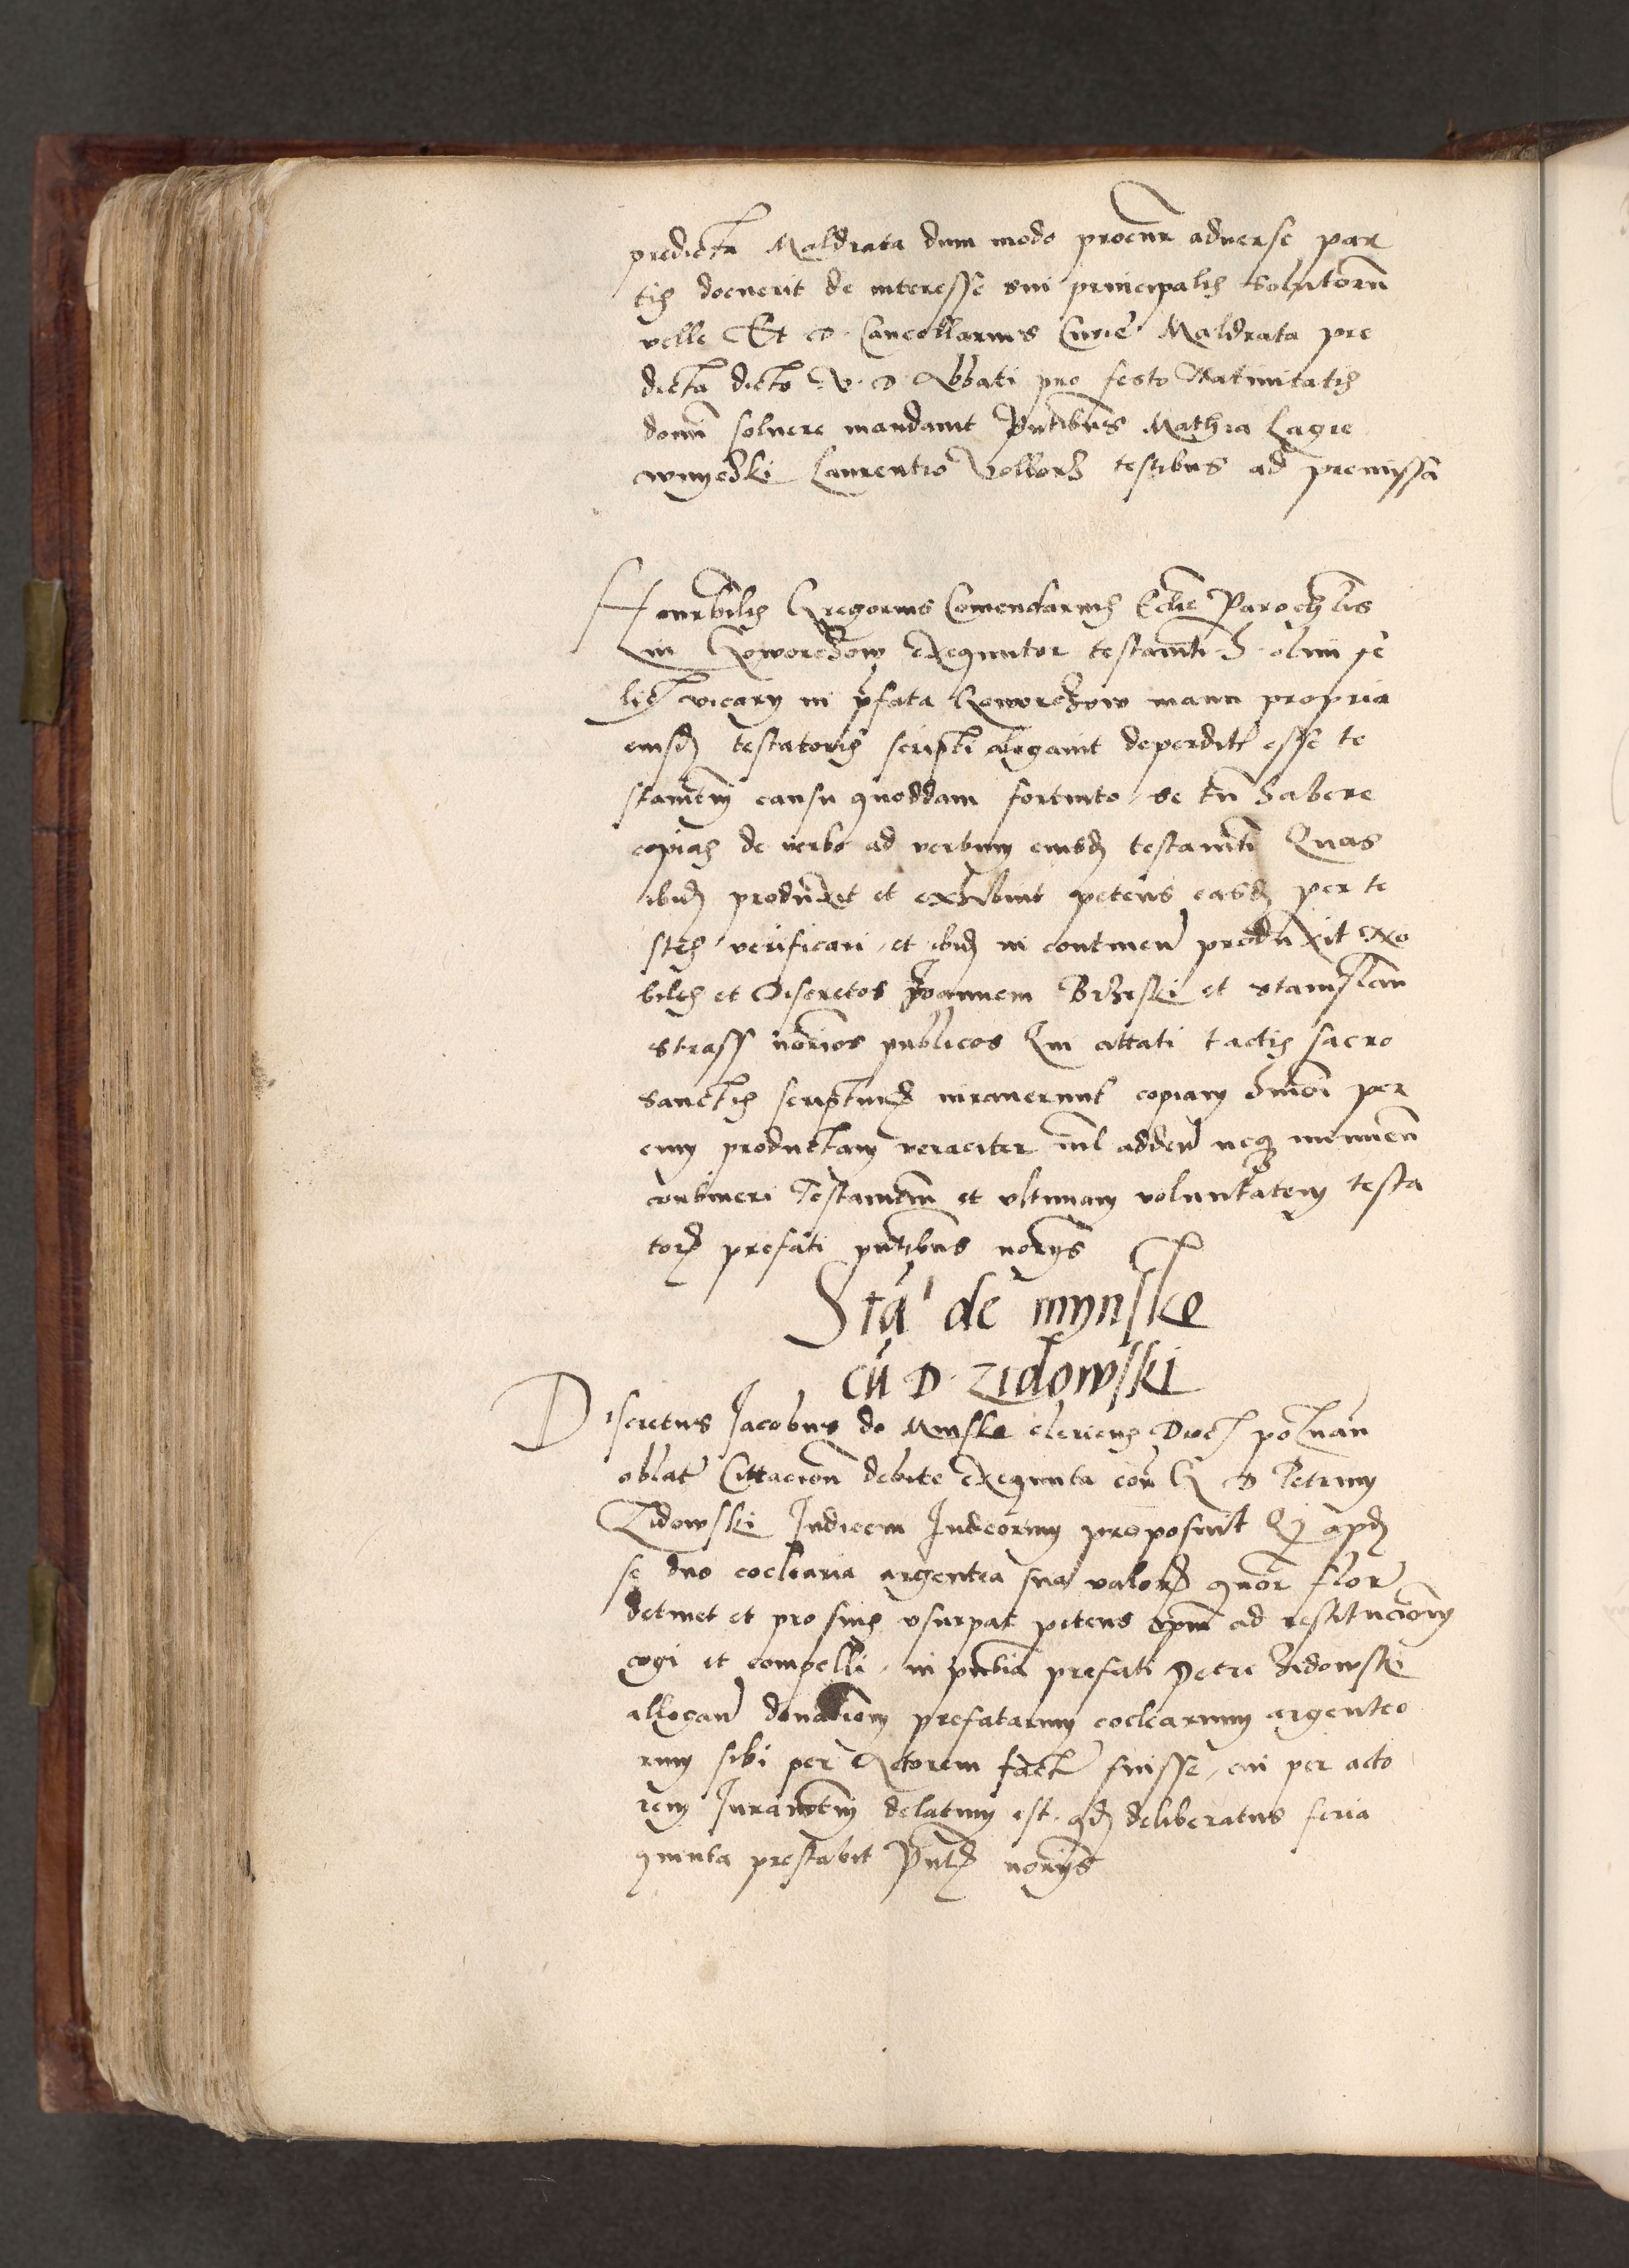 predicta Maldrata dum modo procur adverse par
tis docuerit de interesse sui principalis soluturu
velle Et D. Cancellarius Curie Maldrata pre
dicta dicto V. D. Abbati pro festo Nativitatis
domi solvere mandavit Pntibus Mathia Lagie
wnyczki Laurentio testibus ad premissa
Honrbilis Gregorius Comendarius Eccle Parochlis
in Goworczow exequutor testamti olim fe
lic vicary in pfata Goworczow manu propria
eiusd testatoris scripti alegavit deperdit esse te
stamtum causu quoddam fortuito se tn habere
copias de verbo ad verbum eiusd testamti Quas
ibid produxit et exhibuit petens easd per te
stes verificari et ibid in continen produxit No
biles et Discretos Joannem Brzeski et Stanislau
Strass notrios publicos Qui cittati tactis sacro
sanctis scripturis iuraverunt copiam hmoi per
eum productam veraciter nil adden neq minuen
contineri Testamtum et ultimam voluntatem testa
toris prefati pntibus notrys
Sta de mynske
cu D. Zidowski
Discretus Jacobus de Minske clericus Dioc poznan
oblat Cittacion debite exequuta con G D Petrum
Zidowski Judicem Judeorum proposuit Q apud
se duo coclearia argentea sua valoris quor flor
detinet et pro suis usurpat petens ipm ad restitucionem
cogi et compelli in pntia prefati Petri Zidowski
allegan donationem prefatarum coclearium argenteo
rum sibi per Actorem fact fuisse, cui per acto
rem Juramtum delatum est qd deliberatus feria
quinta prestabit Pntibus notrys